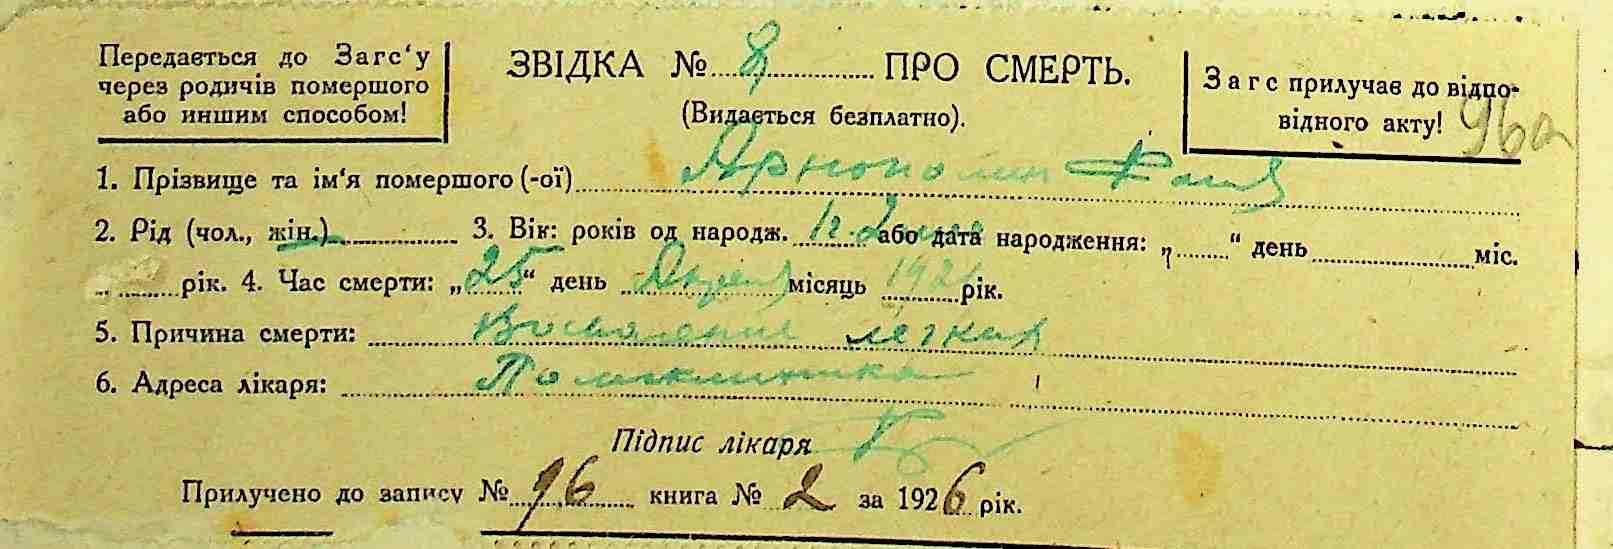 Передається до Загс‘у
через родичів помершого
або иншим способом!
ЗВІДКА № 8 ПРО СМЕРТЬ.
(Видається безплатно).
Загс прилучає до відпо-
відного акту! 96а
1. Прізвище та ім‘я помершого (-ої)
2. Рід (чол., жін.) 3. Вік: років од народж. 1 г. 2 мес або дата народження: „ “ день міс.
рік. 4. Час смерти: „25“ день місяць 1926 рік.
5. Причина смерти: Воспаление легких
6. Адреса лікаря: Поликлиника
Підпис лікаря
Прилучено до запису № 96 книга № 2 за 1926 рік.